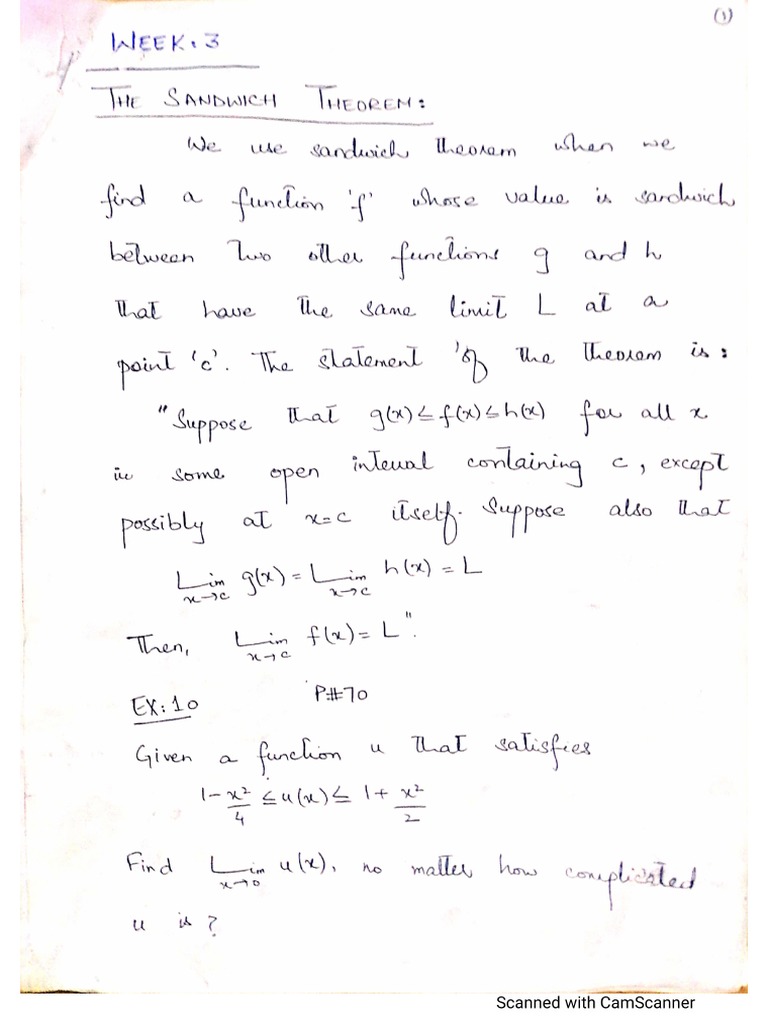 (1)
WEEK: 3
THE SANDWICH THEOREM:
We use sandwich theorem when we
find a function 'f' whose value is sandwich
between two other functions g and h
that have the same limit L at a
point 'c'. The statement of the theorem is:
"Suppose that g(x) ≤ f(x) ≤ h(x) for all x
in some open interval containing c, except
possibly at x=c itself. Suppose also that
Lim x→c g(x) = Lim x→c h(x) = L
Then, Lim x→c f(x) = L".
EX: 10 P#70
Given a function u that satisfies
1 - x²/4 ≤ u(x) ≤ 1 + x²/2
Find Lim x→0 u(x), no matter how complicated
u is?
Scanned with CamScanner